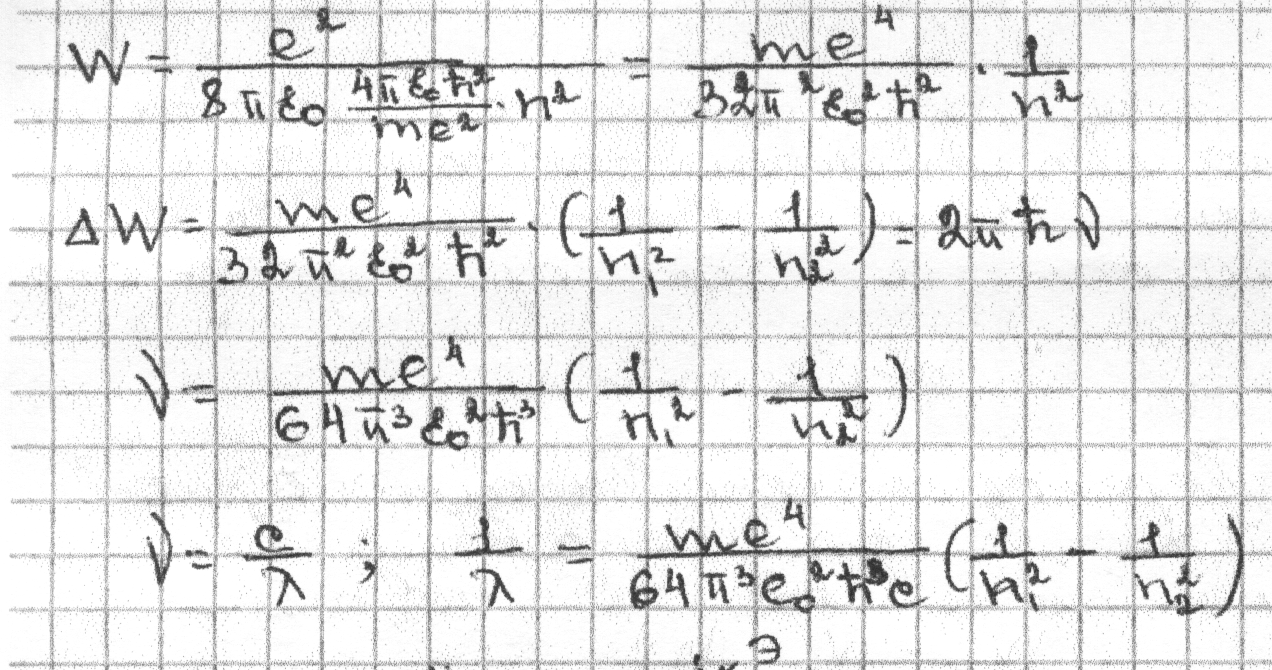 W = e² / (8πε₀ (4πε₀ħ² / me²) · n²) = me⁴ / (32π²ε₀²ħ²) · 1/n²
ΔW = me⁴ / (32π²ε₀²ħ²) · (1/n₁² − 1/n₂²) = 2πħν
ν = me⁴ / (64π³ε₀²ħ³) (1/n₁² − 1/n₂²)
ν = c/λ ; 1/λ = me⁴ / (64π³e₀²ħ³c) (1/n₁² − 1/n₂²)